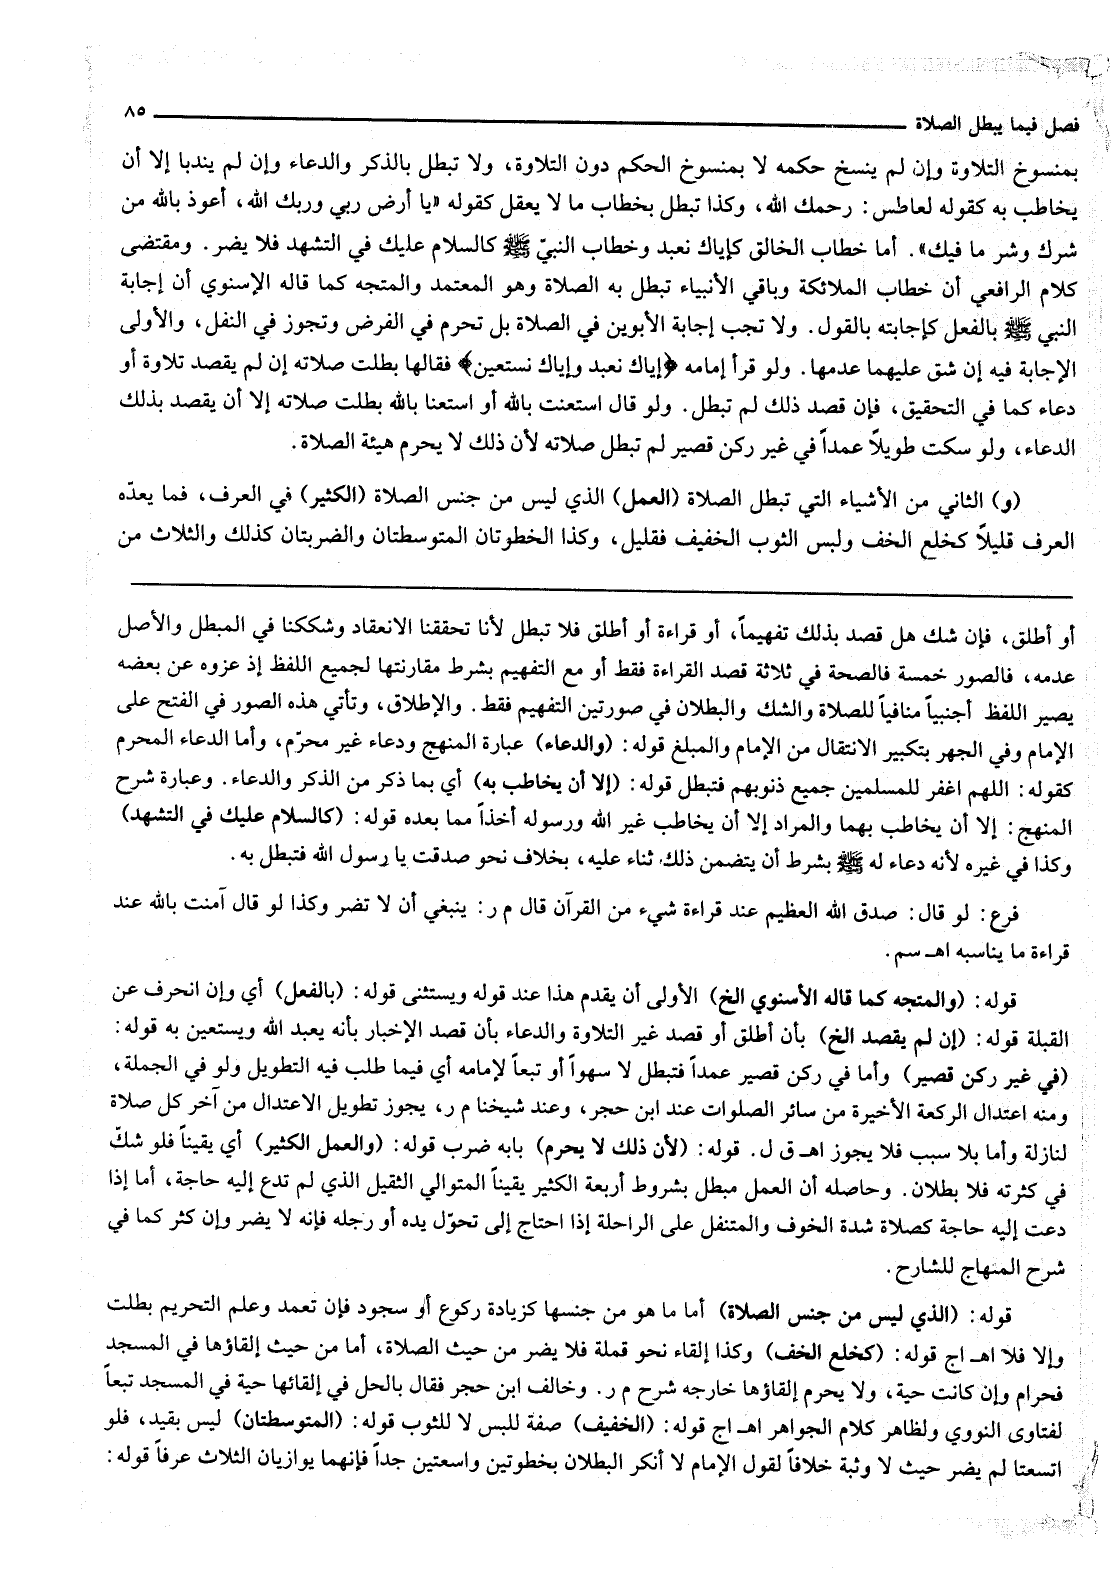 فصل فيما يبطل الصلاة ٨٥
بمنسوخ التلاوة وإن لم ينسخ حكمه لا بمنسوخ الحكم دون التلاوة، ولا تبطل بالذكر والدعاء وإن لم يندبا إلا أن
يخاطب به كقوله لعاطس: رحمك الله، وكذا تبطل بخطاب ما لا يعقل كقوله «يا أرض ربي وربك الله، أعوذ بالله من
شرك وشر ما فيك». أما خطاب الخالق كإياك نعبد وخطاب النبيّ ﷺ كالسلام عليك في التشهد فلا يضر. ومقتضى
كلام الرافعي أن خطاب الملائكة وباقي الأنبياء تبطل به الصلاة وهو المعتمد والمتجه كما قاله الإسنوي أن إجابة
النبي ﷺ بالفعل كإجابته بالقول. ولا تجب إجابة الأبوين في الصلاة بل تحرم في الفرض وتجوز في النفل، والأولى
الإجابة فيه إن شق عليهما عدمها. ولو قرأ إمامه ﴿إياك نعبد وإياك نستعين﴾ فقالها بطلت صلاته إن لم يقصد تلاوة أو
دعاء كما في التحقيق، فإن قصد ذلك لم تبطل. ولو قال استعنت بالله أو استعنا بالله بطلت صلاته إلا أن يقصد بذلك
الدعاء، ولو سكت طويلاً عمداً في غير ركن قصير لم تبطل صلاته لأن ذلك لا يحرم هيئة الصلاة.
(و) الثاني من الأشياء التي تبطل الصلاة (العمل) الذي ليس من جنس الصلاة (الكثير) في العرف، فما يعدّه
العرف قليلاً كخلع الخف ولبس الثوب الخفيف فقليل، وكذا الخطوتان المتوسطتان والضربتان كذلك والثلاث من
أو أطلق، فإن شك هل قصد بذلك تفهيماً، أو قراءة أو أطلق فلا تبطل لأنا تحققنا الانعقاد وشككنا في المبطل والأصل
عدمه، فالصور خمسة فالصحة في ثلاثة قصد القراءة فقط أو مع التفهيم بشرط مقارنتها لجميع اللفظ إذ عزوه عن بعضه
يصير اللفظ أجنبياً منافياً للصلاة والشك والبطلان في صورتين التفهيم فقط. والإطلاق، وتأتي هذه الصور في الفتح على
الإمام وفي الجهر بتكبير الانتقال من الإمام والمبلغ قوله: (والدعاء) عبارة المنهج ودعاء غير محرّم، وأما الدعاء المحرم
كقوله: اللهم اغفر للمسلمين جميع ذنوبهم فتبطل قوله: (إلا أن يخاطب به) أي بما ذكر من الذكر والدعاء. وعبارة شرح
المنهج: إلا أن يخاطب بهما والمراد إلا أن يخاطب غير الله ورسوله أخذاً مما بعده قوله: (كالسلام عليك في التشهد)
وكذا في غيره لأنه دعاء له ﷺ بشرط أن يتضمن ذلك ثناء عليه، بخلاف نحو صدقت يا رسول الله فتبطل به.
فرع: لو قال: صدق الله العظيم عند قراءة شيء من القرآن قال م ر: ينبغي أن لا تضر وكذا لو قال آمنت بالله عند
قراءة ما يناسبه اهـ سم.
قوله: (والمتجه كما قاله الأسنوي الخ) الأولى أن يقدم هذا عند قوله ويستثنى قوله: (بالفعل) أي وإن انحرف عن
القبلة قوله: (إن لم يقصد الخ) بأن أطلق أو قصد غير التلاوة والدعاء بأن قصد الإخبار بأنه يعبد الله ويستعين به قوله:
(في غير ركن قصير) وأما في ركن قصير عمداً فتبطل لا سهواً أو تبعاً لإمامه أي فيما طلب فيه التطويل ولو في الجملة،
ومنه اعتدال الركعة الأخيرة من سائر الصلوات عند ابن حجر، وعند شيخنا م ر، يجوز تطويل الاعتدال من آخر كل صلاة
لنازلة وأما بلا سبب فلا يجوز اهـ ق ل. قوله: (لأن ذلك لا يحرم) بابه ضرب قوله: (والعمل الكثير) أي يقيناً فلو شكّ
في كثرته فلا بطلان. وحاصله أن العمل مبطل بشروط أربعة الكثير يقيناً المتوالي الثقيل الذي لم تدع إليه حاجة، أما إذا
دعت إليه حاجة كصلاة شدة الخوف والمتنفل على الراحلة إذا احتاج إلى تحوّل يده أو رجله فإنه لا يضر وإن كثر كما في
شرح المنهاج للشارح.
قوله: (الذي ليس من جنس الصلاة) أما ما هو من جنسها كزيادة ركوع أو سجود فإن تعمد وعلم التحريم بطلت
وإلا فلا اهـ اج قوله: (كخلع الخف) وكذا إلقاء نحو قملة فلا يضر من حيث الصلاة، أما من حيث إلقاؤها في المسجد
فحرام وإن كانت حية، ولا يحرم إلقاؤها خارجه شرح م ر. وخالف ابن حجر فقال بالحل في إلقائها حية في المسجد تبعاً
لفتاوى النووي ولظاهر كلام الجواهر اهـ اج قوله: (الخفيف) صفة للبس لا للثوب قوله: (المتوسطتان) ليس بقيد، فلو
اتسعتا لم يضر حيث لا وثبة خلافاً لقول الإمام لا أنكر البطلان بخطوتين واسعتين جداً فإنهما يوازيان الثلاث عرفاً قوله: